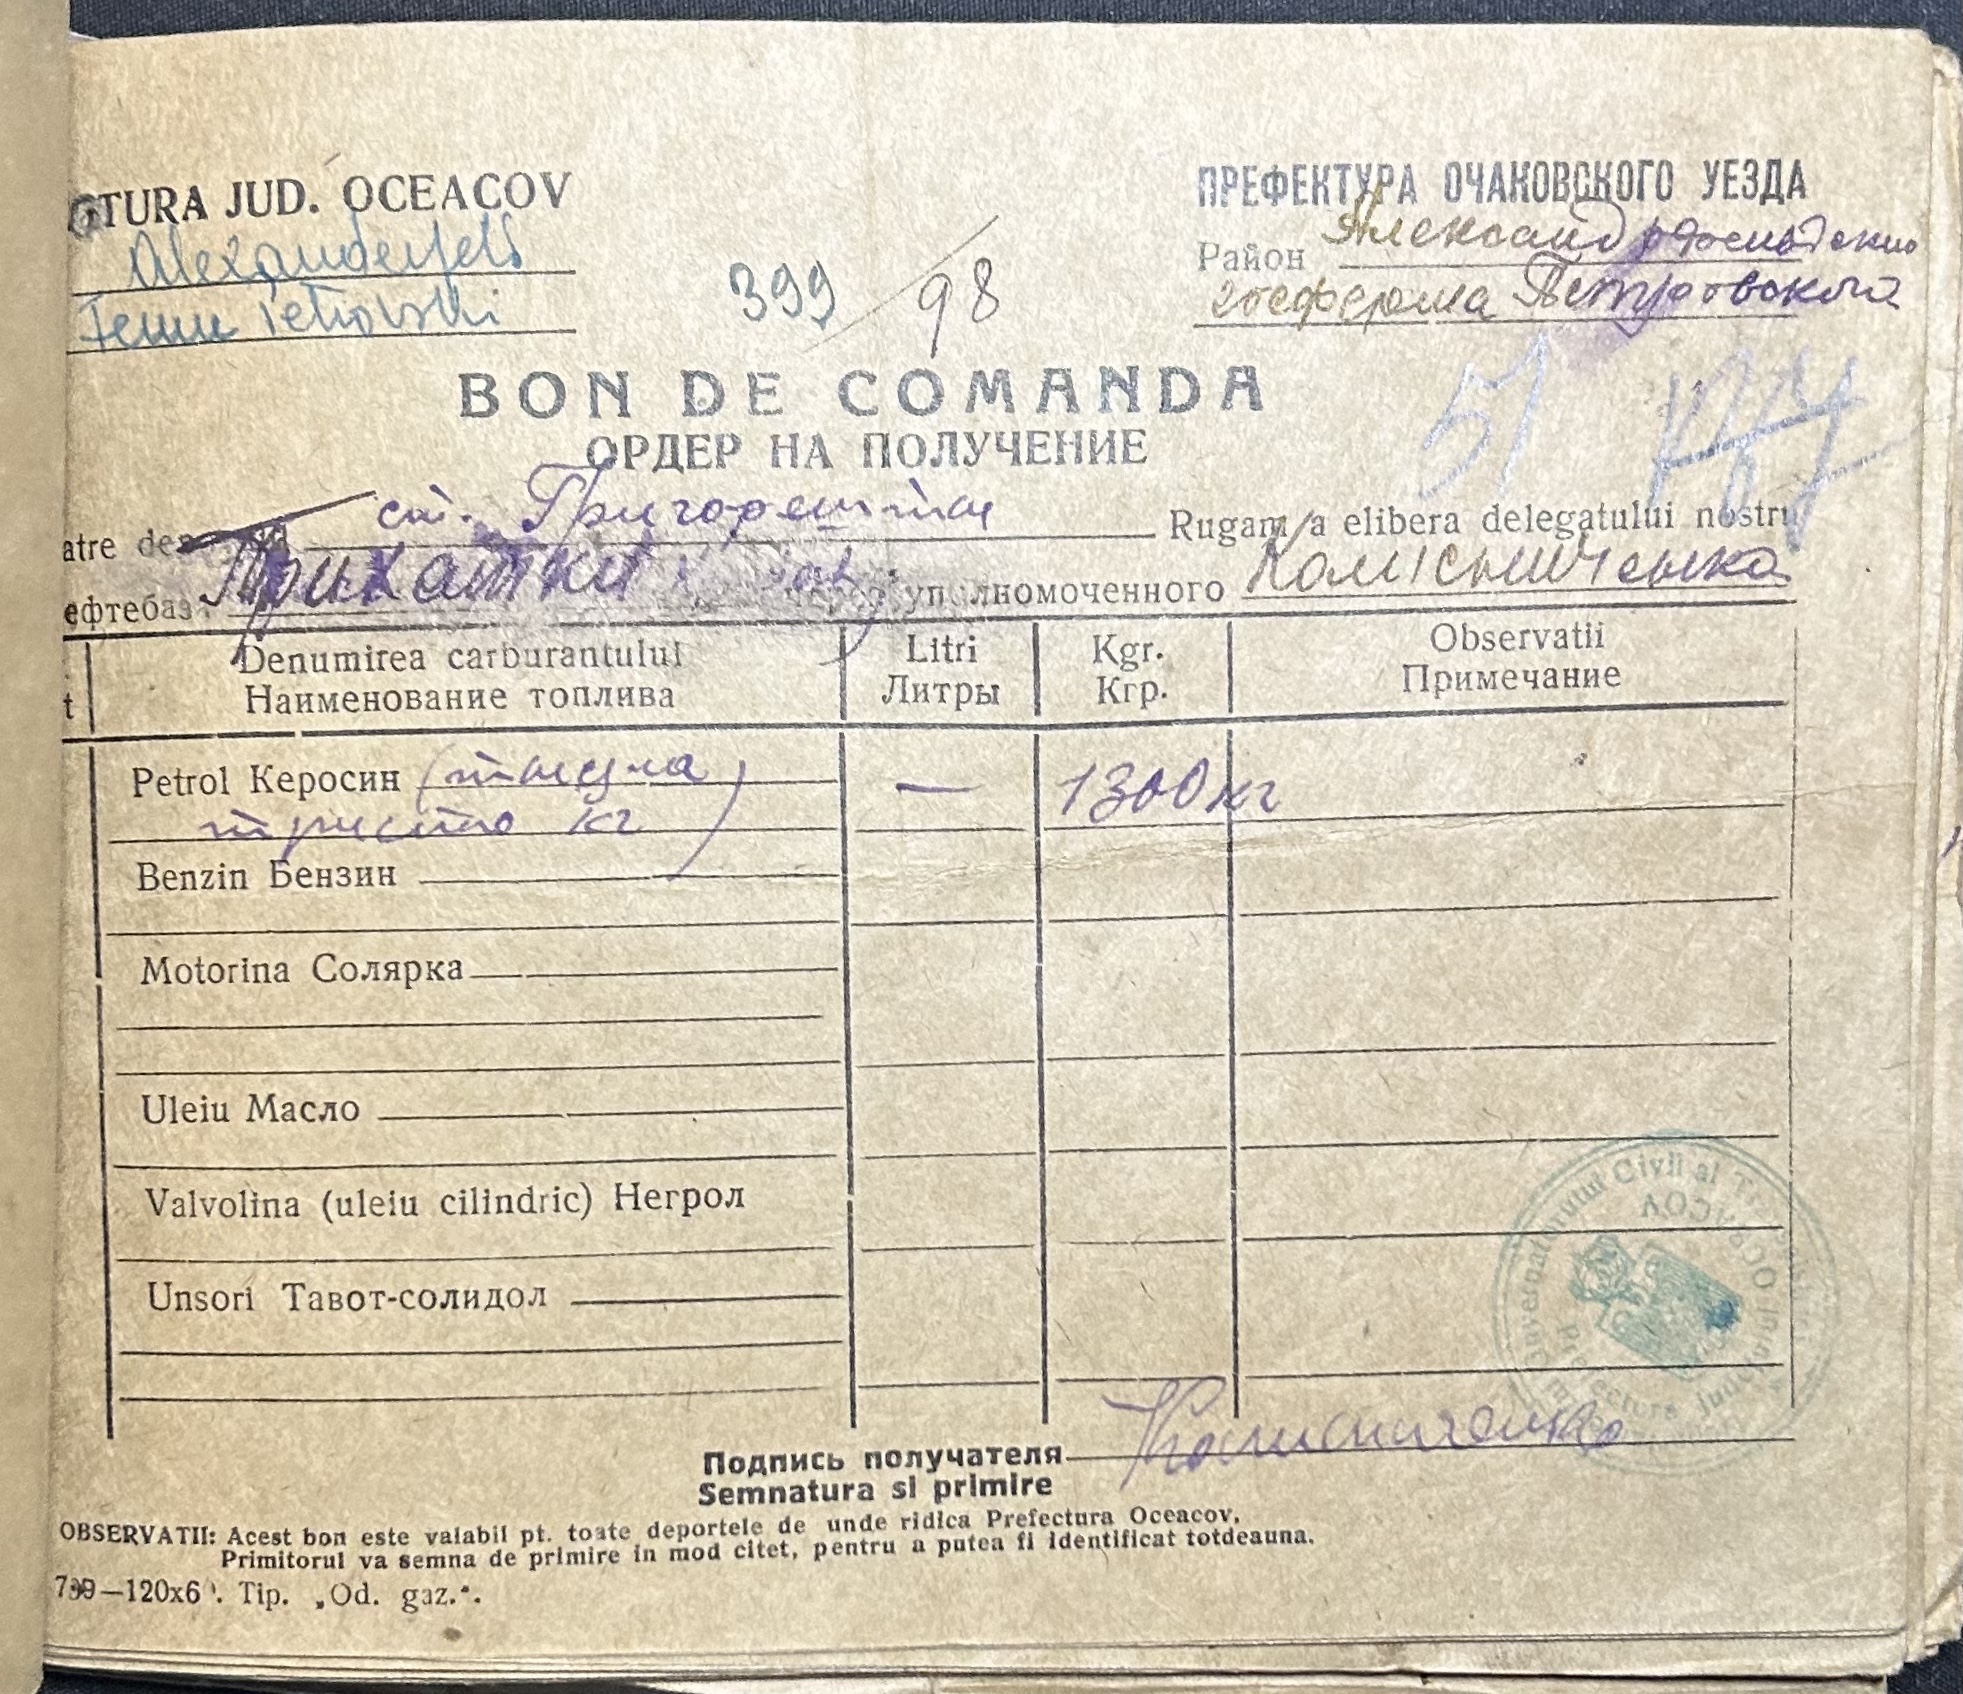 TURA JUD. OCEACOV
Alexanderfeld
Petrovski
399/98
ПРЕФЕКТУРА ОЧАКОВСКОГО УЕЗДА
Район Александрфельдский
госферма Петровской
51
BON DE COMANDA
ОРДЕР НА ПОЛУЧЕНИЕ
atre ст. Rugam a elibera delegatului nostru
ефтебаз Трихатки уполномоченного
t
Denumirea carburantului
Наименование топлива
Litri
Литры
Kgr.
Кгр.
Observatii
Примечание
Petrol Керосин (тысяча — 1300 кг
триста кг)
Benzin Бензин
Motorina Солярка
Uleiu Масло
Valvolina (uleiu cilindric) Негрол
Unsori Тавот-солидол
Подпись получателя
Semnatura si primire
OBSERVATII: Acest bon este valabil pt. toate deportele de unde ridica Prefectura Oceacov.
Primitorul va semna de primire in mod citet, pentru a putea fi identificat totdeauna.
Tip. „Od. gaz.".